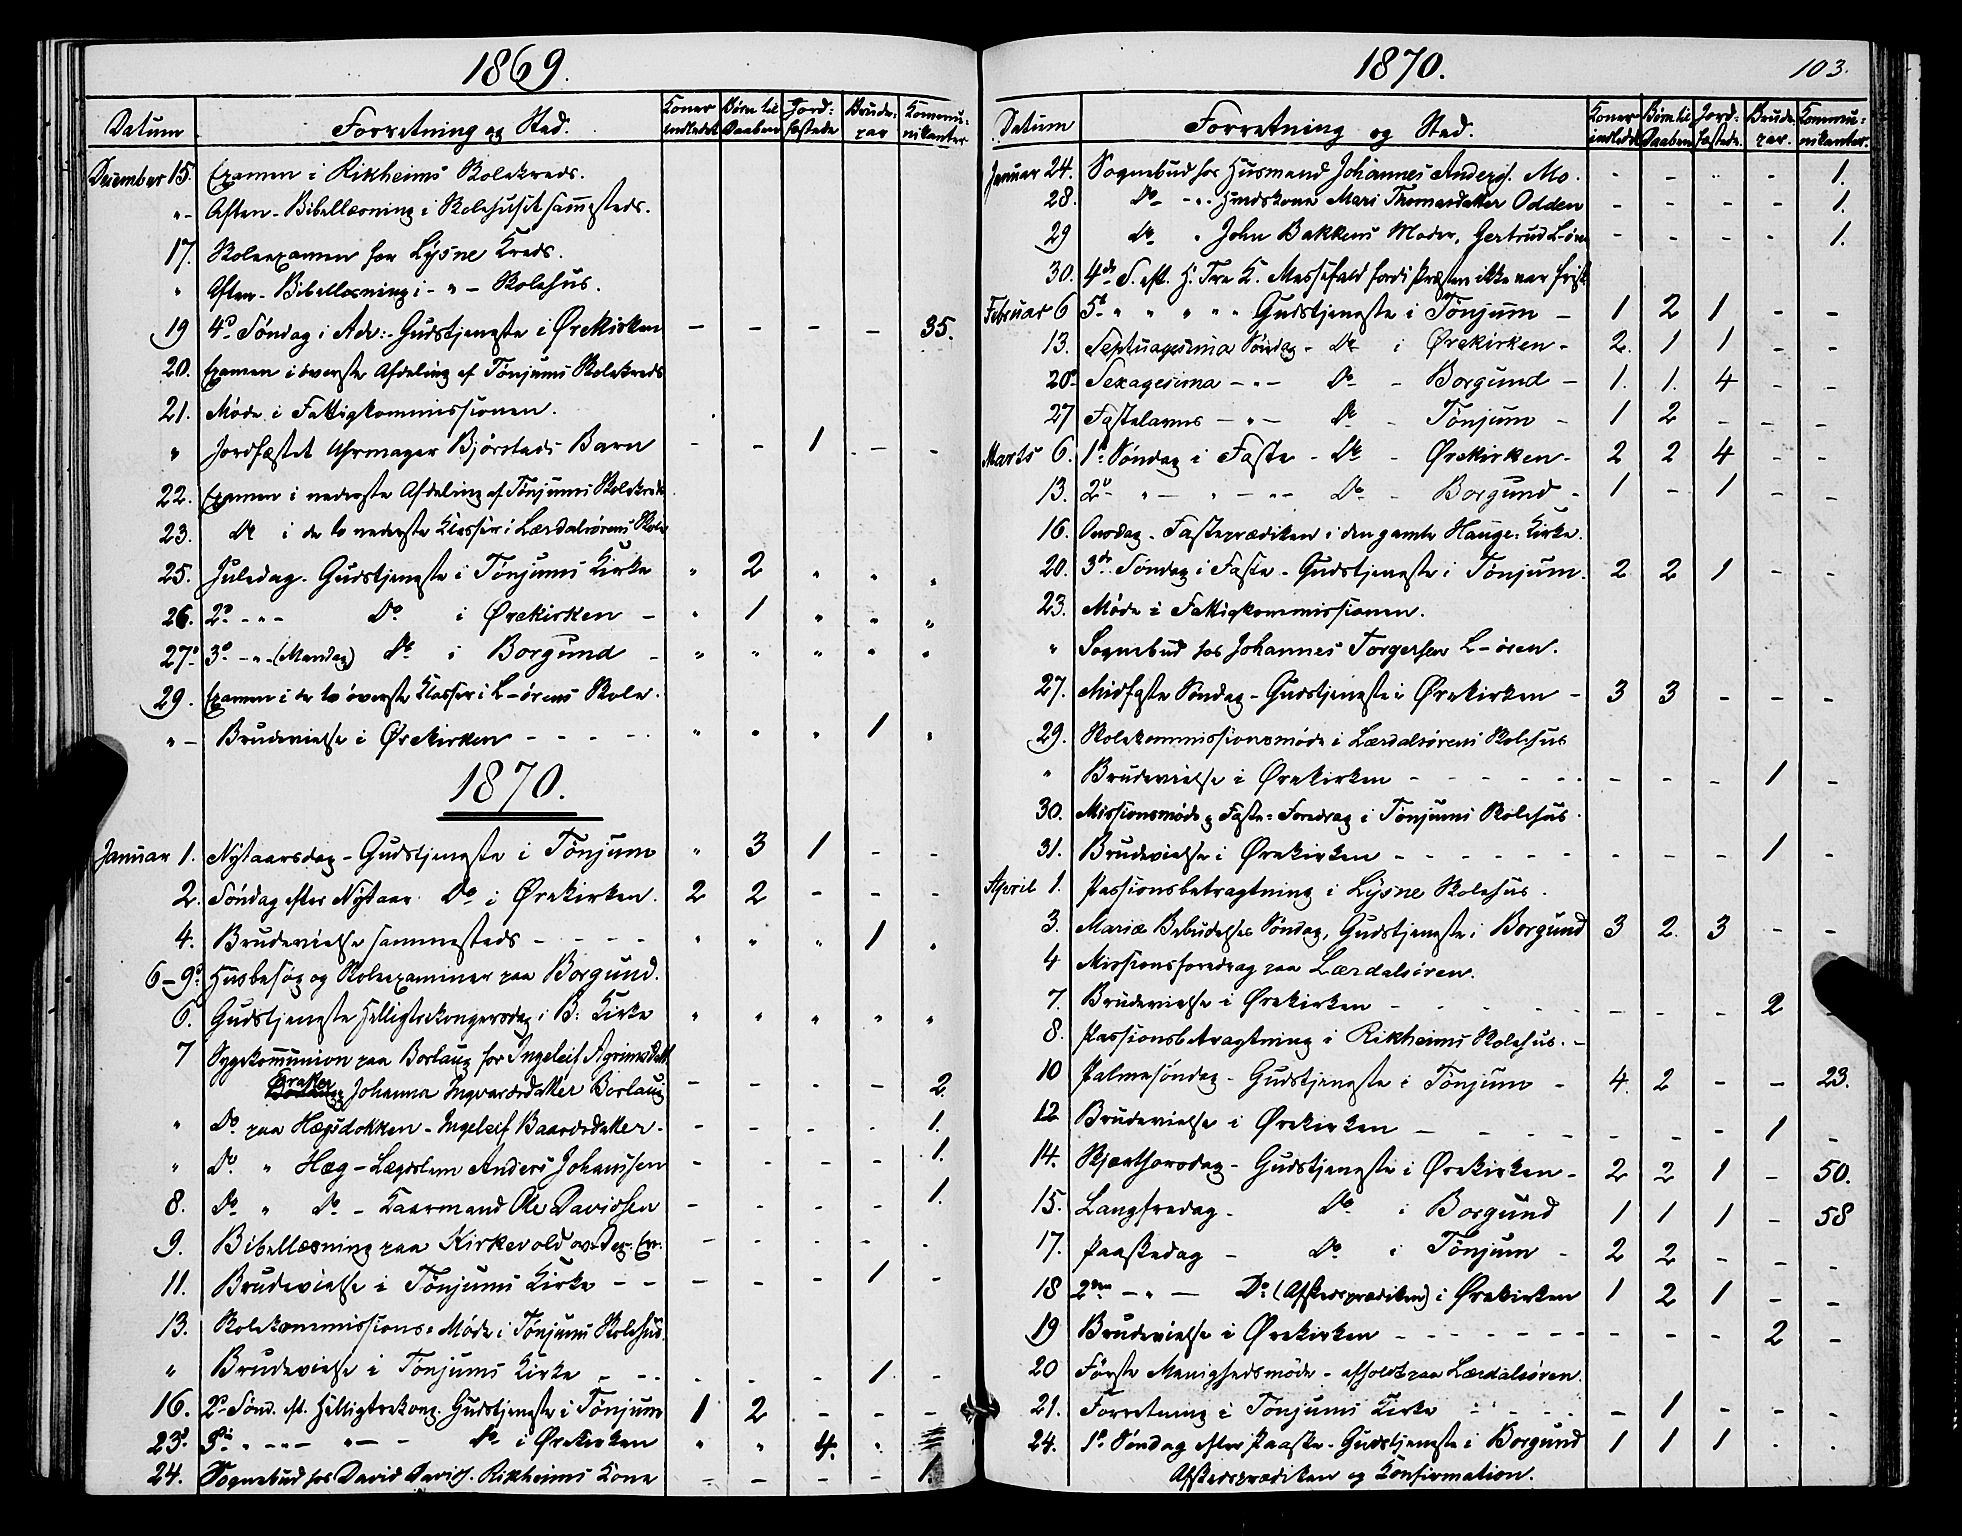 1869.
Datum Forretning og Sted. Koner indledet Børn til Daaben Jord-fæstede Brude-par Kommu-nikanter
December 15. Examen i Rikheims Skolekreds.
" - Aften-Bibellæsning i Skolehuset sammesteds.
17. Skoleexamen for Lysne Kreds.
" Aften-Bibellæsning i - " - Skolehus.
19 4de Søndag i Adv:- Gudstjeneste i Ørekirken - - - - 35.
20. Examen i øverste Afdeling af Tønjums Skolekreds
21. Møde i Fattigkommissionen.
" Jordfæstet Uhrmager Bjørsteds Barn - - 1 - -
22. Examen i nederste Afdeling af Tønjums Skolekreds
23. Do i de to nederste Klasser i Lærdalsørens Skole
25. Juledag. Gudstjeneste i Tønjums Kirke " 2 " " "
26. 2den - " - Do i Ørekirken - " 1 " " "
27. 3die - " - (Mandag) Do i Borgund - " " " " "
29. Examen i de to øverste Klasser i L-ørens Skole.
" - Brudevielse i Ørekirken - - - - " " " 1 "
1870.
Januar 1. Nytaarsdag - Gudstjeneste i Tønjum " 3 1 - -
2. Søndag efter Nytaar Do i Ørekirken. 2 2 - - -
4. Brudevielse sammesteds - - - - " " " 1 "
6-9. Husbesøg og Skoleexaminer paa Borgund.
6. Gudstjeneste Helligtrekongersdag i B: Kirke " " " " "
7 Sygekommunion paa Borlaug for Ingeleif Agrimsdatt
Johanna Ingvarsdatter Borlaug - - - - 2.
" Do paa Hægsdokken - Ingeleif Baardsdatter - - - - - 1.
" Do " Hæg - Lægdslem Anders Johannsen - - - - 1.
8. Do " Do - Kaarmand Ole Davidsen - - - - 1.
9. Bibellæsning paa Kirkevold - - - - -
11. Brudevielse i Tønjums Kirke - - - - - 1 -
13. Skolekommissions-Møde i Tønjums Skolehus.
" Brudevielse i Tønjums Kirke - - - - - - 1 -
16. 2den Sønd. eft. Helligtrekong. Gudstjeneste i Tønjum 1 2 - - -
23. 3die " - " - " - - Do i Ørekirken " " 4. "
24. Sognebud hos David Davids. Rikheims Kone - - - - 1.
1870.
103.
Datum Forretning og Sted. Koner indledet Børn til Daaben Jord-fæstede Brude-par. Kommu-nikanter.
Januar 24. Sognebud hos Husmand Johannes Anders. Mo. - - - - 1.
28. Do - " - Huuskone Mari Thomasdatter Odden - - - - 1.
29 Do " John Bakkens Moder, Gertrud L-øren - - - - 1.
30. 4de S. eft. H. Tre K. Messefald fordi Præsten ikke var frisk
Februar 6 5te " " " " Gudstjeneste i Tønjum - 1 2 1 - -
13. Septuagesima Søndag - Do i Ørekirken - 2. 1 1 - -
20. Sexagesima - " - Do - Borgund - 1. 1. 4 - -
27 Fastelavns - " - Do - Tønjum - 1 2 - - -
Marts 6. 1ste Søndag i Faste - Do - Ørekirken - 2 2 4 - -
13. 2den " - " - " - Do - Borgund - 1 - 1 - -
16. Onsdag. Fasteprædiken i den gamle Hauge-Kirke.
20. 3die Søndag i Faste - Gudstjeneste i Tønjum. 2 2 1 - -
23. Møde i Fattigkommissionen.
" Sognebud hos Johannes Torgersen L-øren.
27. Midfaste Søndag - Gudstjeneste i Ørekirken - 3 3 - - -
29. Skolekommissionsmøde i Lærdalsørens Skolehus
" Brudevielse i Ørekirken - - - - - - - - 1 -
30. Missionsmøde & Faste-Foredrag i Tønjums Skolehus.
31. Brudevielse i Ørekirken - - - - - - - - 1 -
April 1. Passionsbetragtning i Lysne Skolehus.
3. Mariæ Bebudelses Søndag, Gudstjeneste i Borgund 3 2. 3 - -
4 Missionsforedrag paa Lærdalsøren.
7. Brudevielse i Ørekirken - - - - - - - 2 -
8. Passionsbetragtning i Rikheims Skolehus. -
10 Palmesøndag - Gudstjeneste i Tønjum - 4. 2 - - 23.
12 Brudevielse i Ørekirken - - - - - - - 1 -
14. Skjærthorsdag - Gudstjeneste i Ørekirken - 2 2 1 - 50.
15. Langfredag - Do i Borgund 1 1 1 - 58
17. Paaskedag - Do i Tønjum - 2 2 - - -
18 2den - " - Do (Afskedsprædiken) i Ørekirken 1 2 1 - -
19 Brudevielse i Ørekirken - - - - - - - - 2 -
20 Første Menighedsmøde - afholdt paa Lærdalsøren.
21. Forretning i Tønjums Kirke - - - - - 1 - - -
24. 1ste Søndag efter Paaske - Gudstjeneste i Borgund 1 1 1 - -
Afskedsprædiken og Konfirmation.